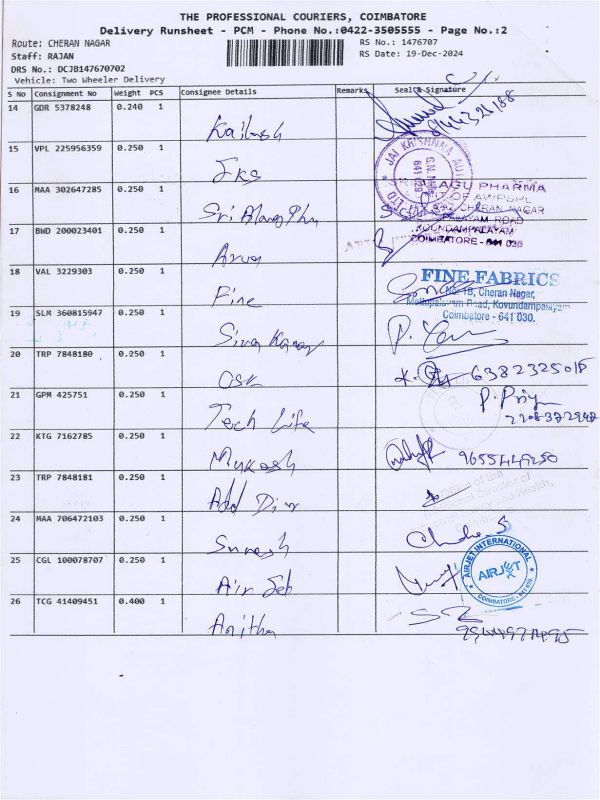 THE PROFESSIONAL COURIERS, COIMBATORE
Delivery Runsheet - PCM - Phone No.:0422-3505555 - Page No.:2
Route: CHERAN NAGAR
RS No.: 1476707
Staff: RAJAN
RS Date: 19-Dec-2024
DRS No.: DCJB147670702
Vehicle: Two Wheeler Delivery
S No Consignment No Weight PCS Consignee Details Remarks Seal & Signature
14 GDR 5378248 0.240 1
Kailash
15 VPL 225956359 0.250 1
JKS
JAI KRISHNAA AUTO
641 029
16 MAA 302647285 0.250 1
Sri
PHARMA
CHERAN NAGAR
ROAD
KOUNDAMPALAYAM
COIMBATORE - 641 030
17 BWD 200023401 0.250 1
Arun
18 VAL 3229303 0.250 1
Fine
FINE FABRICS
Cheran Nagar,
Road, Kovundampalayam
Coimbatore - 641 030.
19 SLM 360815947 0.250 1
Siva
20 TRP 7848180 0.250 1
OSK
6382325015
21 GPM 425751 0.250 1
Tech Life
P. Priya
22 KTG 7162785 0.250 1
Mukesh
9655449250
23 TRP 7848181 0.250 1
Add
24 MAA 706472103 0.250 1
Suresh
25 CGL 100078707 0.250 1
Air Jet
AIRJET INTERNATIONAL
AIRJET
COIMBATORE
26 TCG 41409451 0.400 1
Anitha